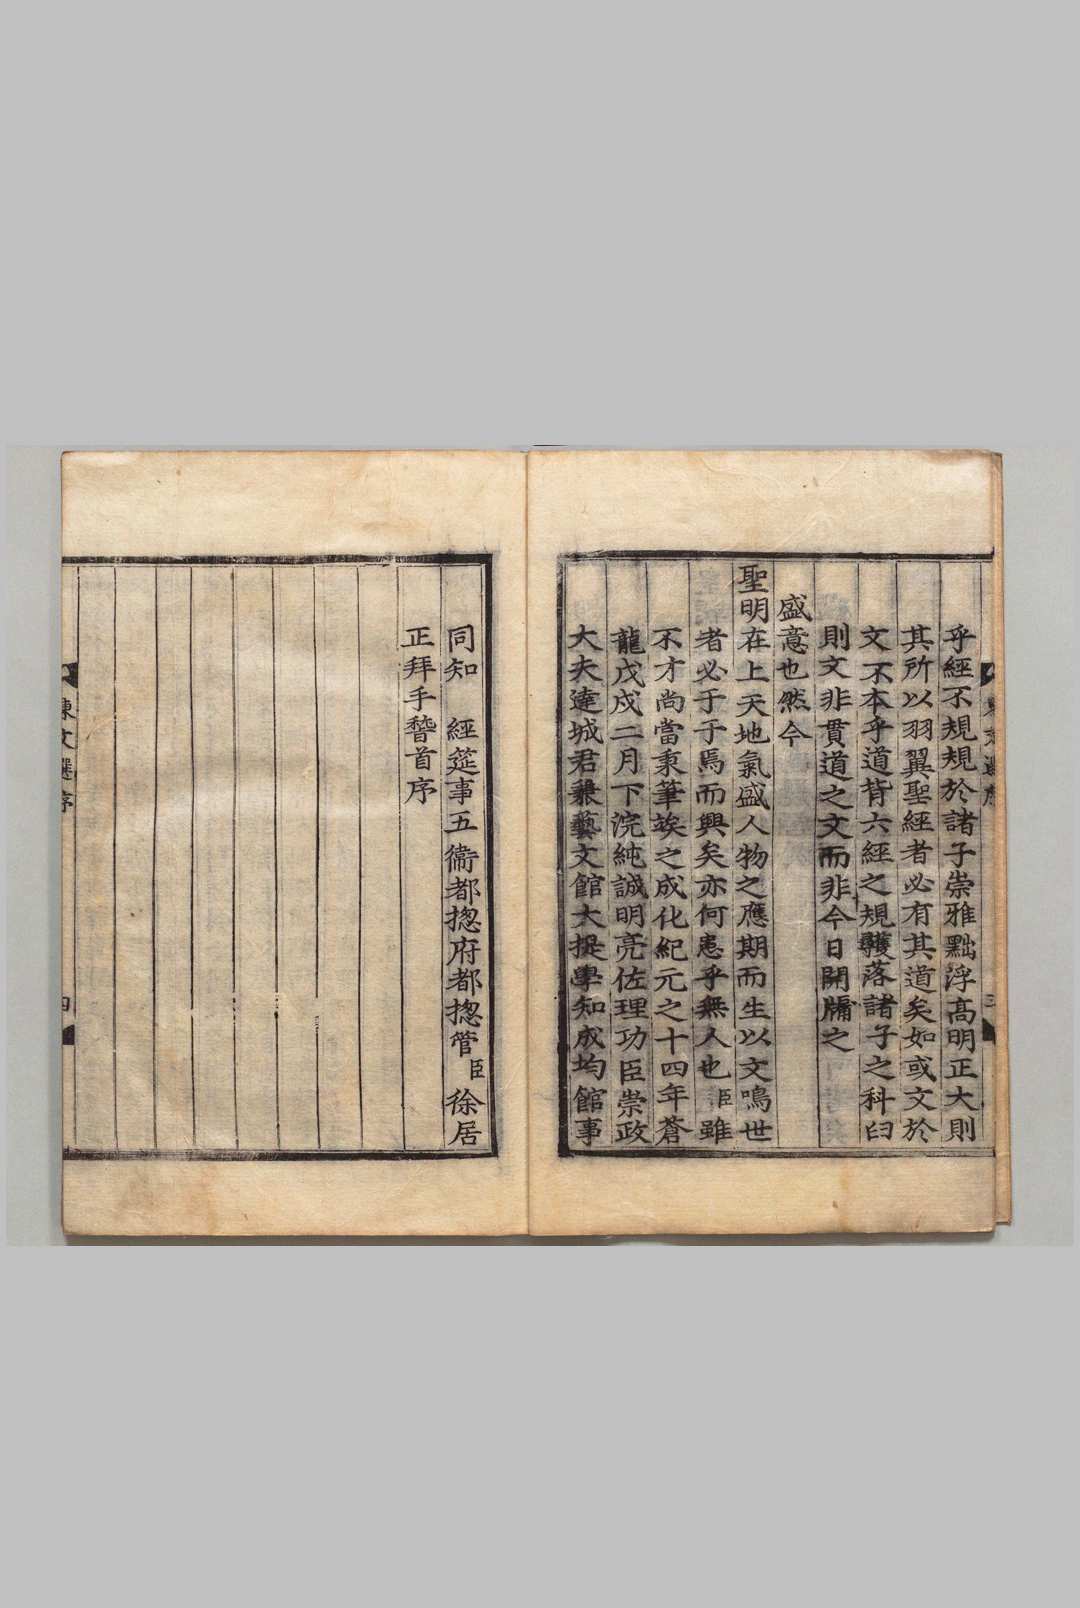 乎經不規規於諸子崇雅黜浮高明正大則
其所以羽翼聖經者必有其道矣如或文於
文不本乎道背六經之規彠落諸子之科臼
則文非貫道之文而非今日開牖之
盛意也然今
聖明在上天地氣盛人物之應期而生以文鳴世
者必于于焉而興矣亦何患乎無人也臣雖
不才尚當秉筆竢之成化紀元之十四年蒼
龍戊戌二月下浣純誠明亮佐理功臣崇政
大夫達城君兼藝文館大提學知成均館事
同知 經筵事五衛都揔府都揔管臣徐居
正拜手䭬首序
東文選序
四